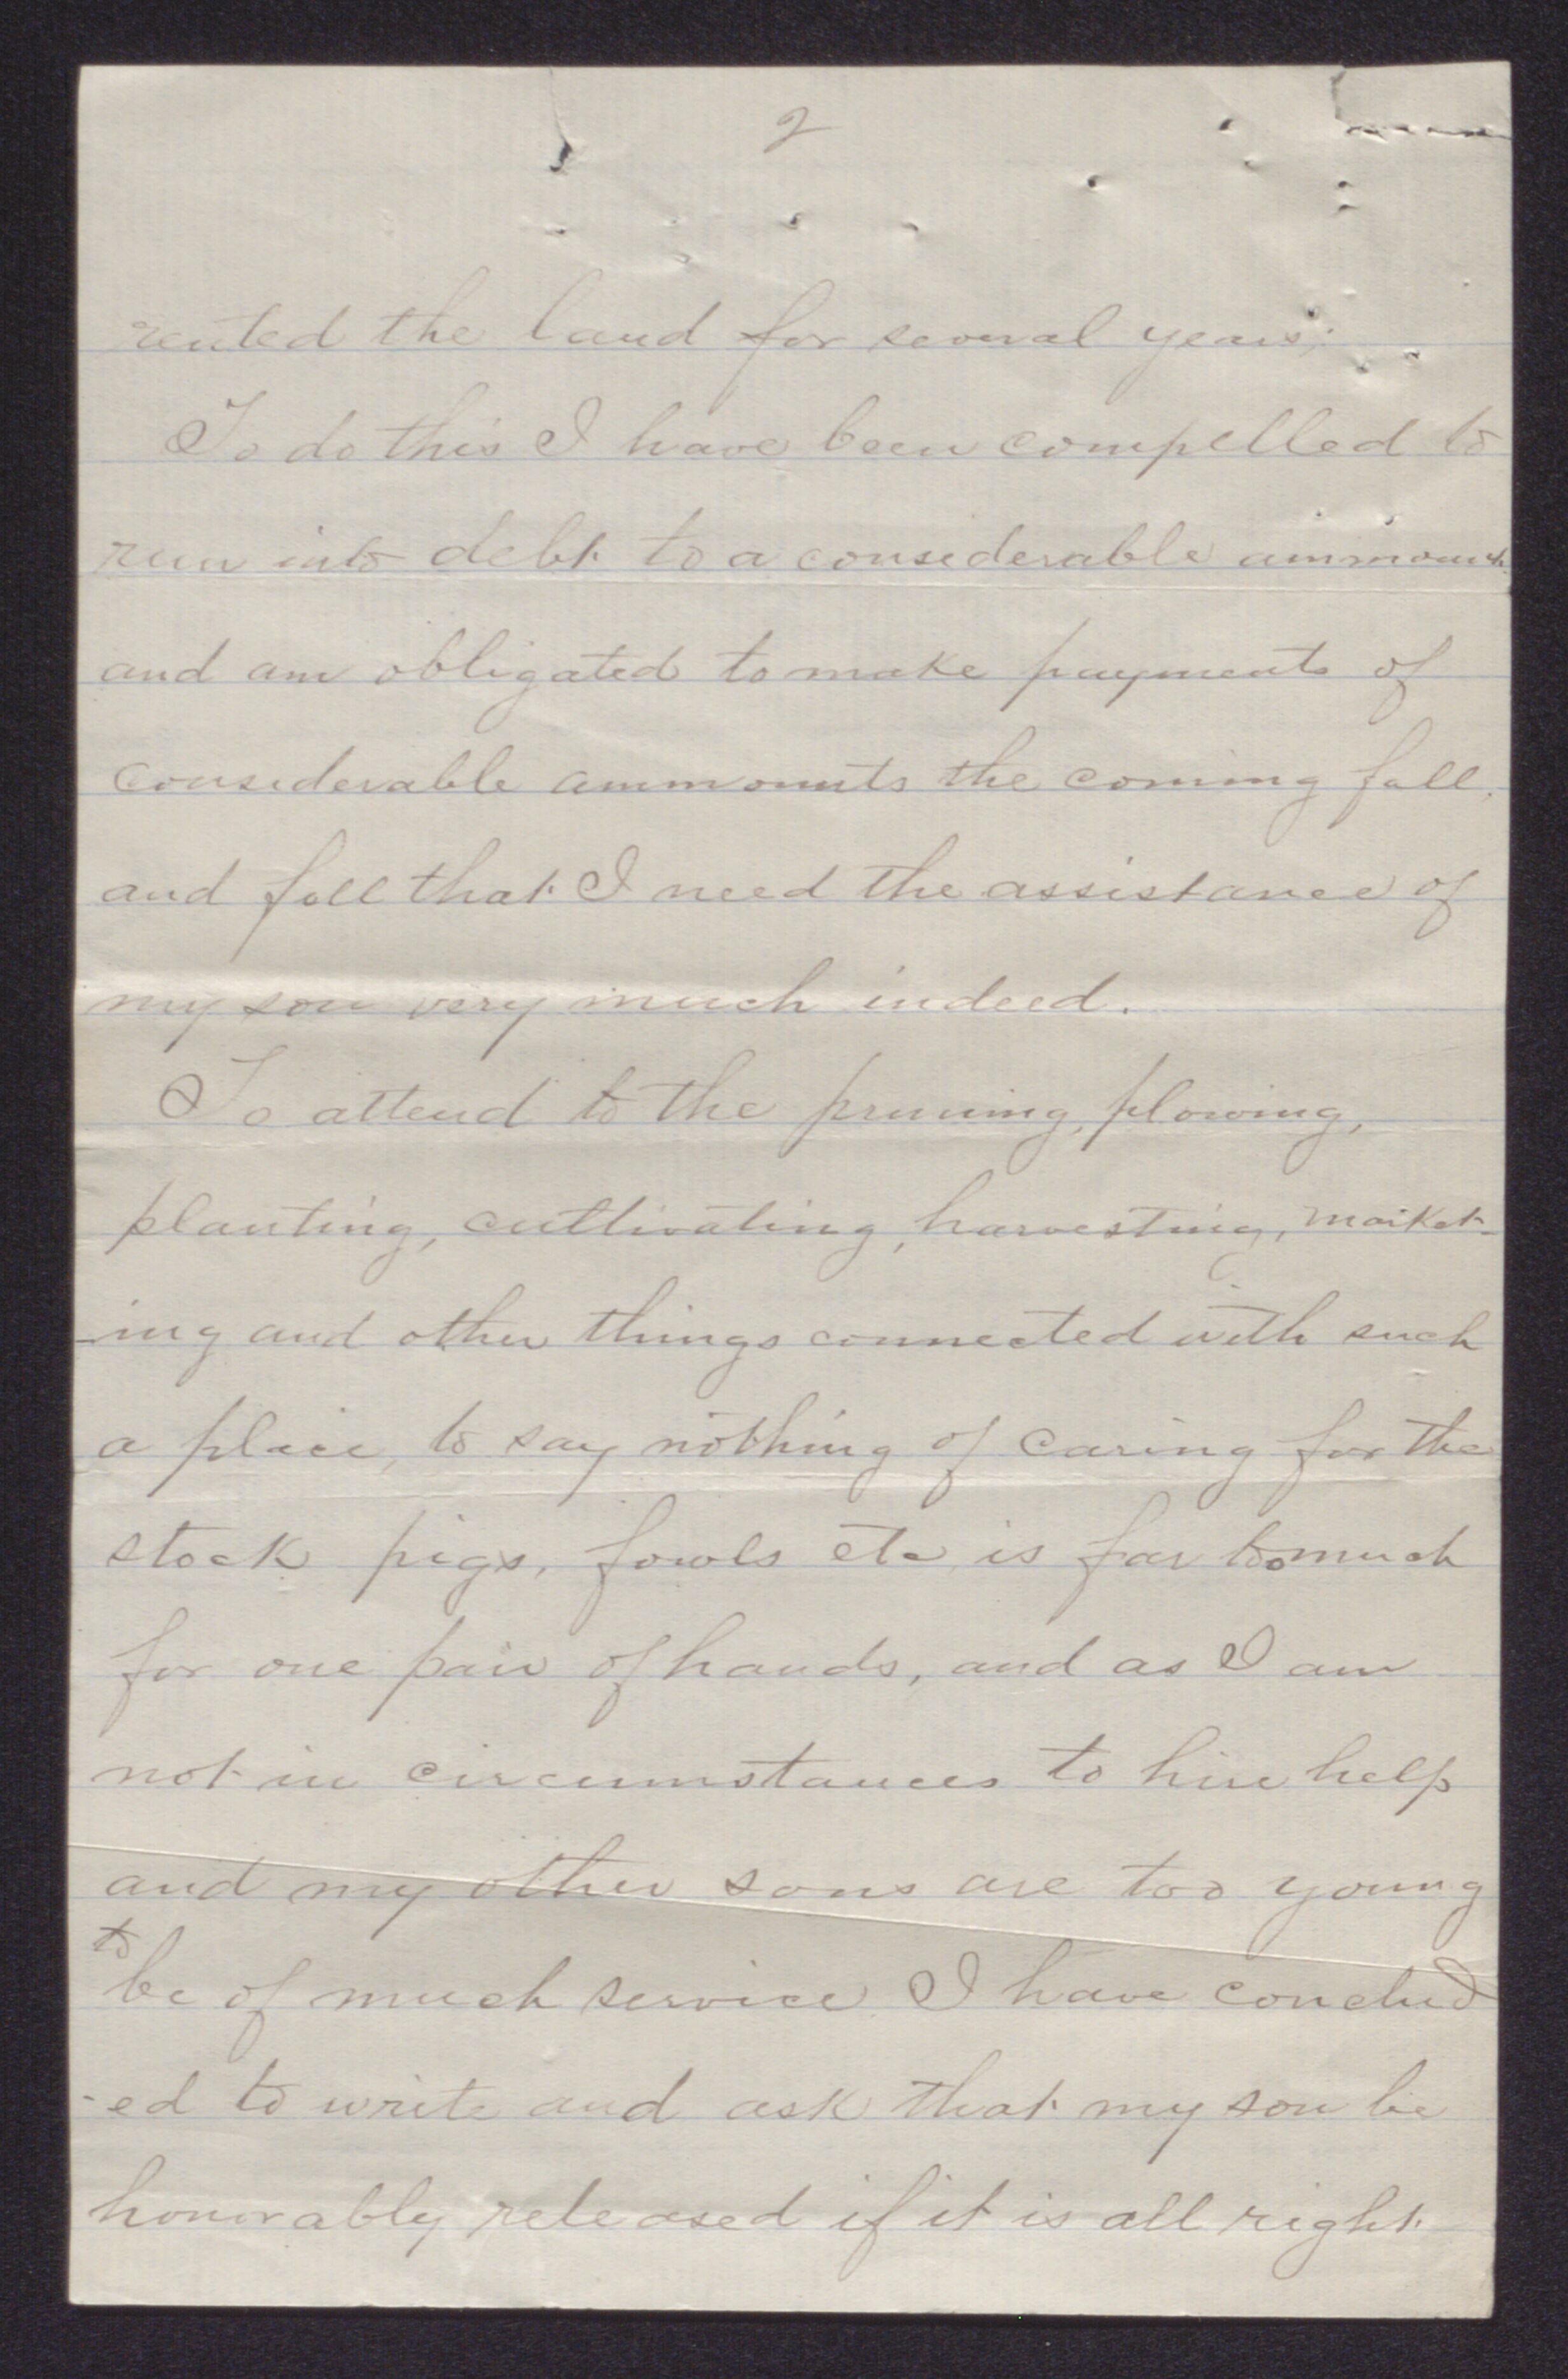 2
rented the land for several years;
To do this I have been compelled to
run into debt to a considerable ammount
and am obligated to make payments of
considerable ammounts the coming fall,
and fell that I need the assistance of
my son very much indeed.
To attend to the pruning, plowing,
planting, cultivating, harvesting, market-
-ing and other things connected with such
a place, to say nothing of caring for the
stock pigs, fowls etc, is far too much
for one pair of hands, and as I am
not in circumstances to hire help
and my other sons are too young
to be of much service I have conclud
-ed to write and ask that my son be
honorably released if it is all right